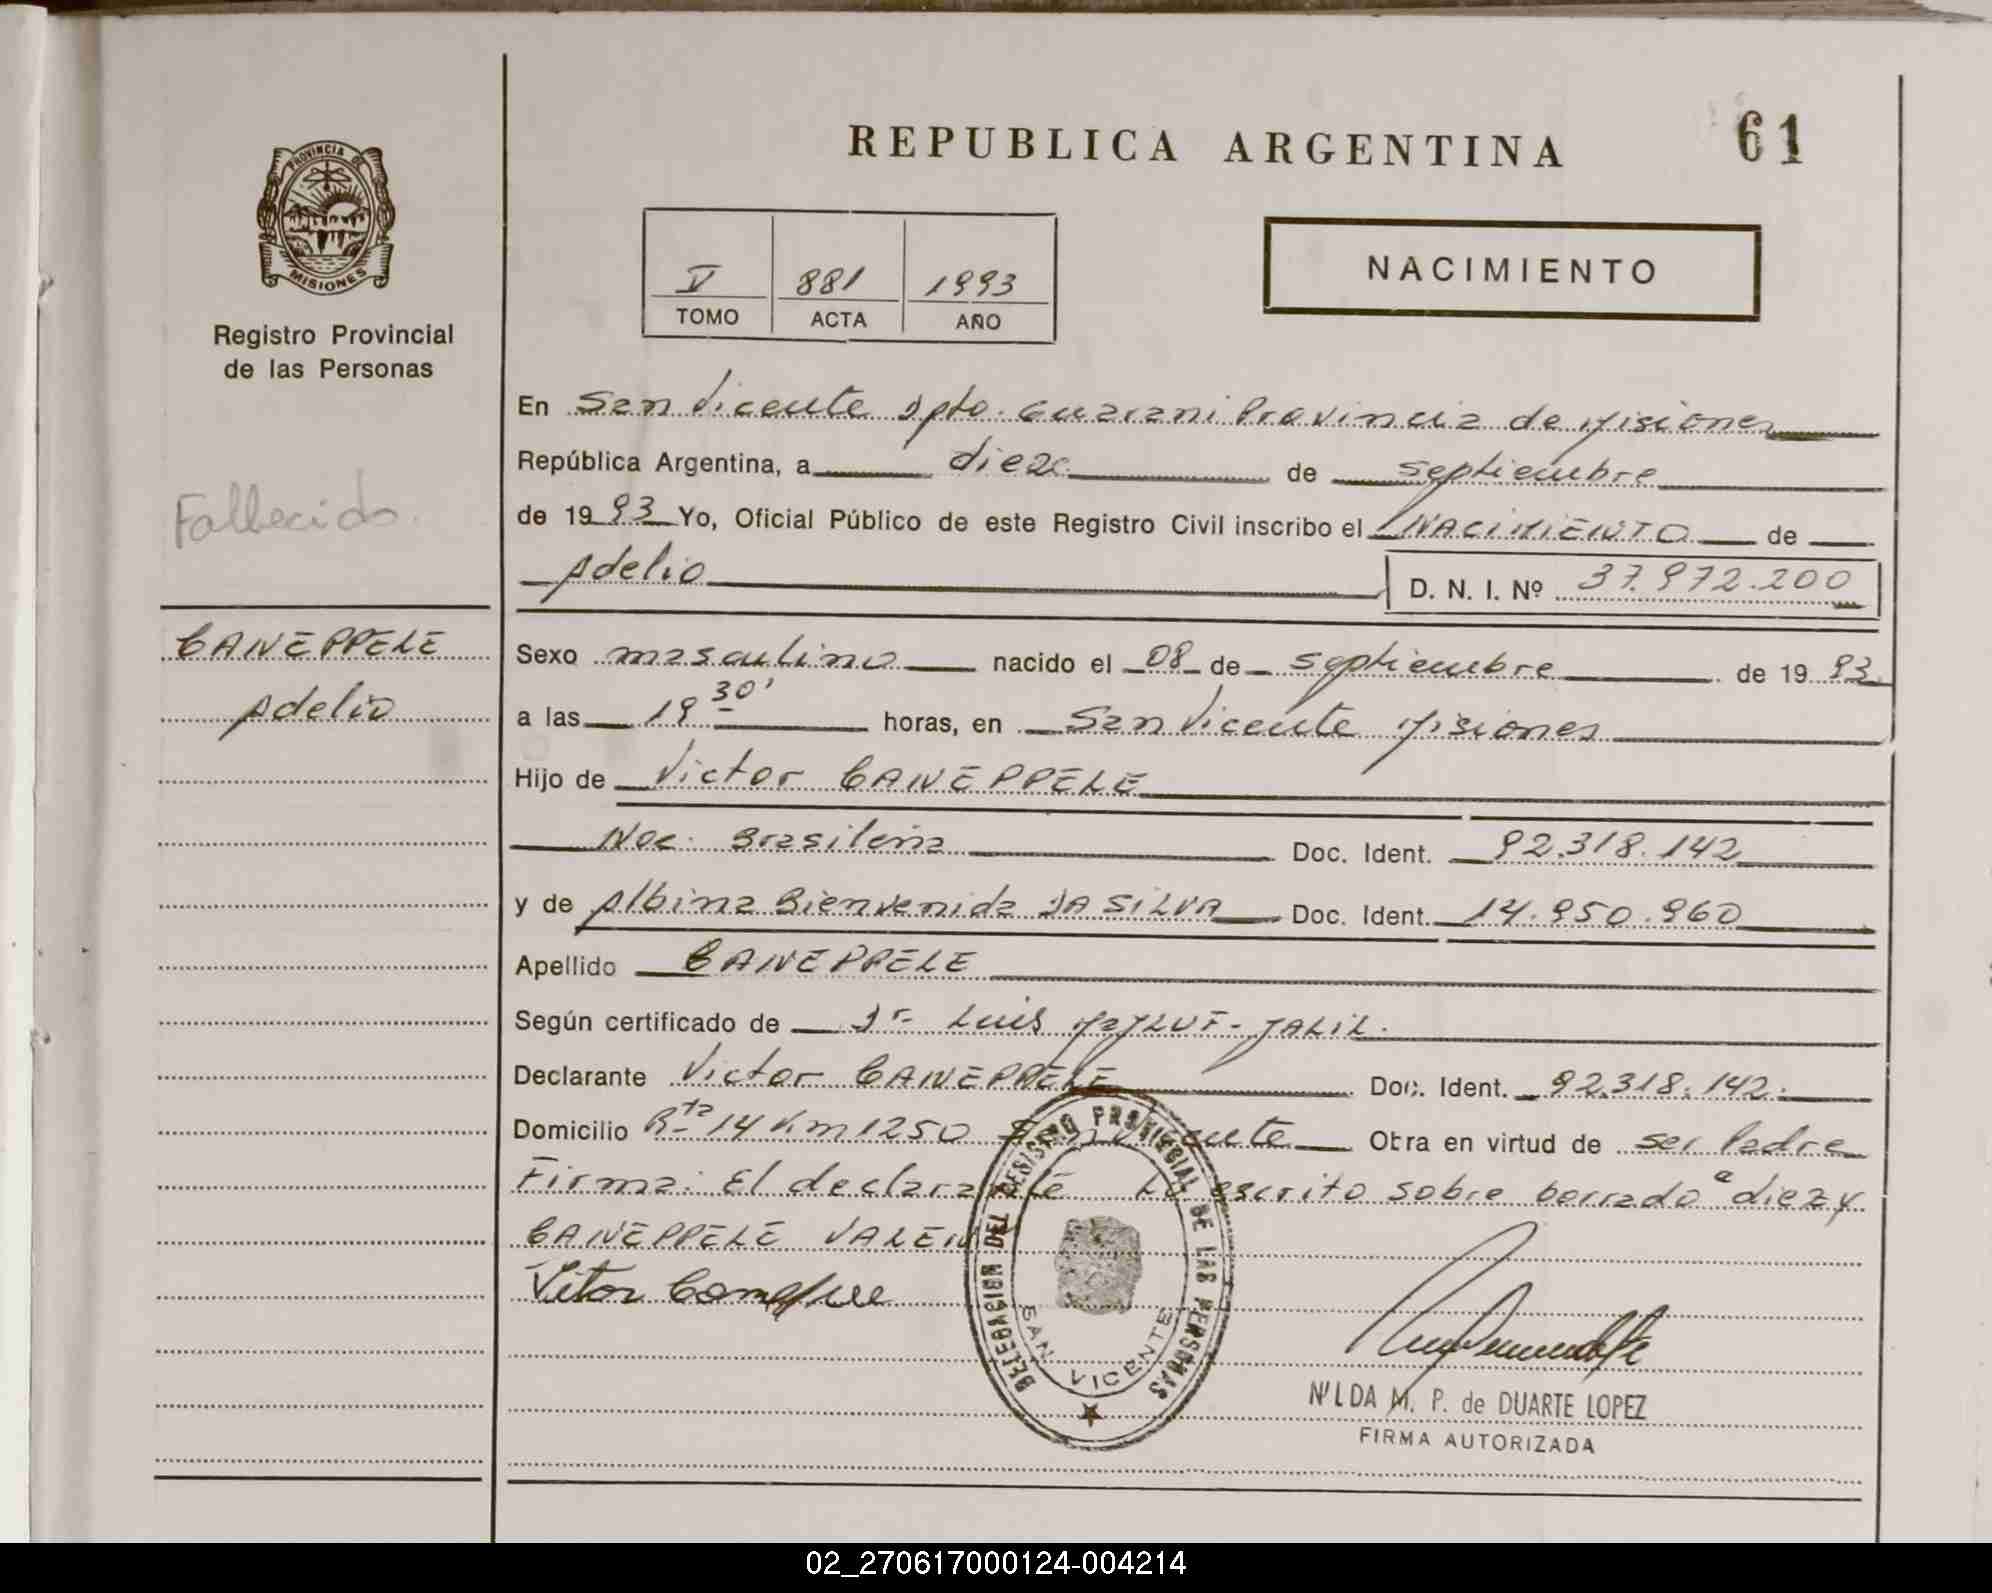 REPUBLICA ARGENTINA
61
PROVINCIA DE
MISIONES
Registro Provincial
de las Personas
V 881 1993
TOMO ACTA AÑO
NACIMIENTO
Fallecido.
CANEPPELE
Adelio
En San Vicente Dpto. Guarani Provincia de Misiones
República Argentina, a diez de septiembre
de 1993 Yo, Oficial Público de este Registro Civil inscribo el NACIMIENTO de
Adelio
D. N. I. Nº 37.972.200
Sexo masculino nacido el 08 de septiembre de 1993
a las 19 30' horas, en San Vicente Misiones
Hijo de Victor CANEPPELE
Nac. Brasileña Doc. Ident. 92.318.142
y de Albina Bienvenida DA SILVA Doc. Ident. 14.950.960
Apellido CANEPPELE
Según certificado de Dr. Luis JALIL.
Declarante Victor CANEPPELE Doc. Ident. 92.318.142.
Domicilio Rta 14 Km 1250 San Vicente Obra en virtud de ser Padre
Firma: El declarante Lo escrito sobre borrado "diez y
CANEPPELE VALEN
DELEGACION DEL REGISTRO PROVINCIAL DE LAS PERSONAS
SAN VICENTE
NILDA M. P. de DUARTE LOPEZ
FIRMA AUTORIZADA
02_270617000124-004214